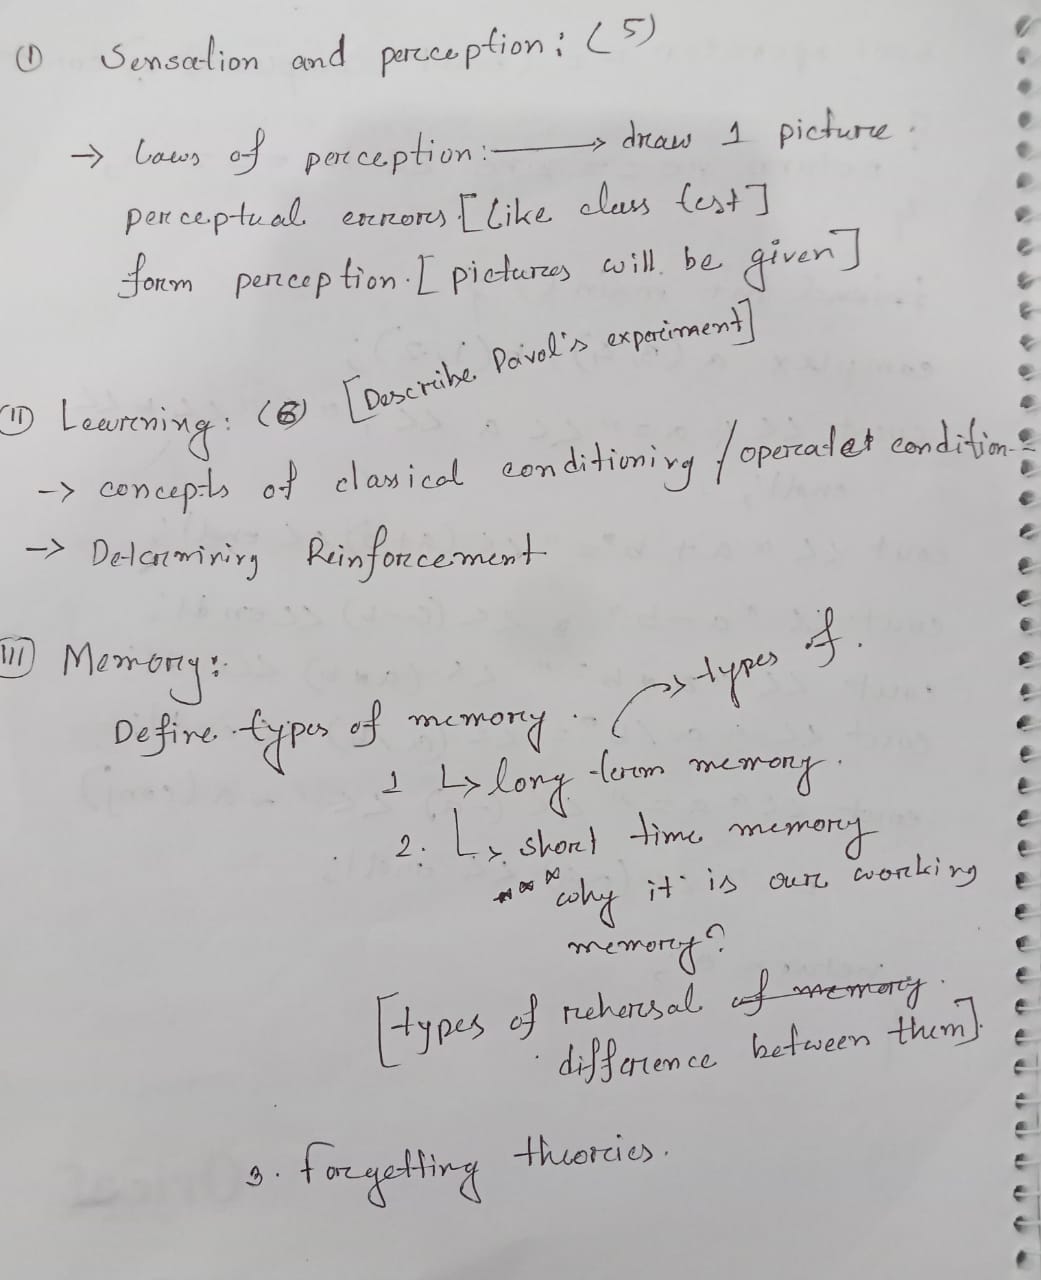 (I) Sensation and perception: (5)
→ Laws of perception: → draw 1 picture.
perceptual errors [Like class test]
form perception. [pictures will be given]
[Describe Pavol's experiment]
(II) Learning: (6)
→ concepts of classical conditioning / operatet condition-
→ Determining Reinforcement
(III) Memory:
Define types of memory. → types of.
1 ↳ long-term memory.
2. ↳ short time memory
*** why it is our working
memory?
[types of rehersal of memory.
difference between them].
3. Forgetting theories.